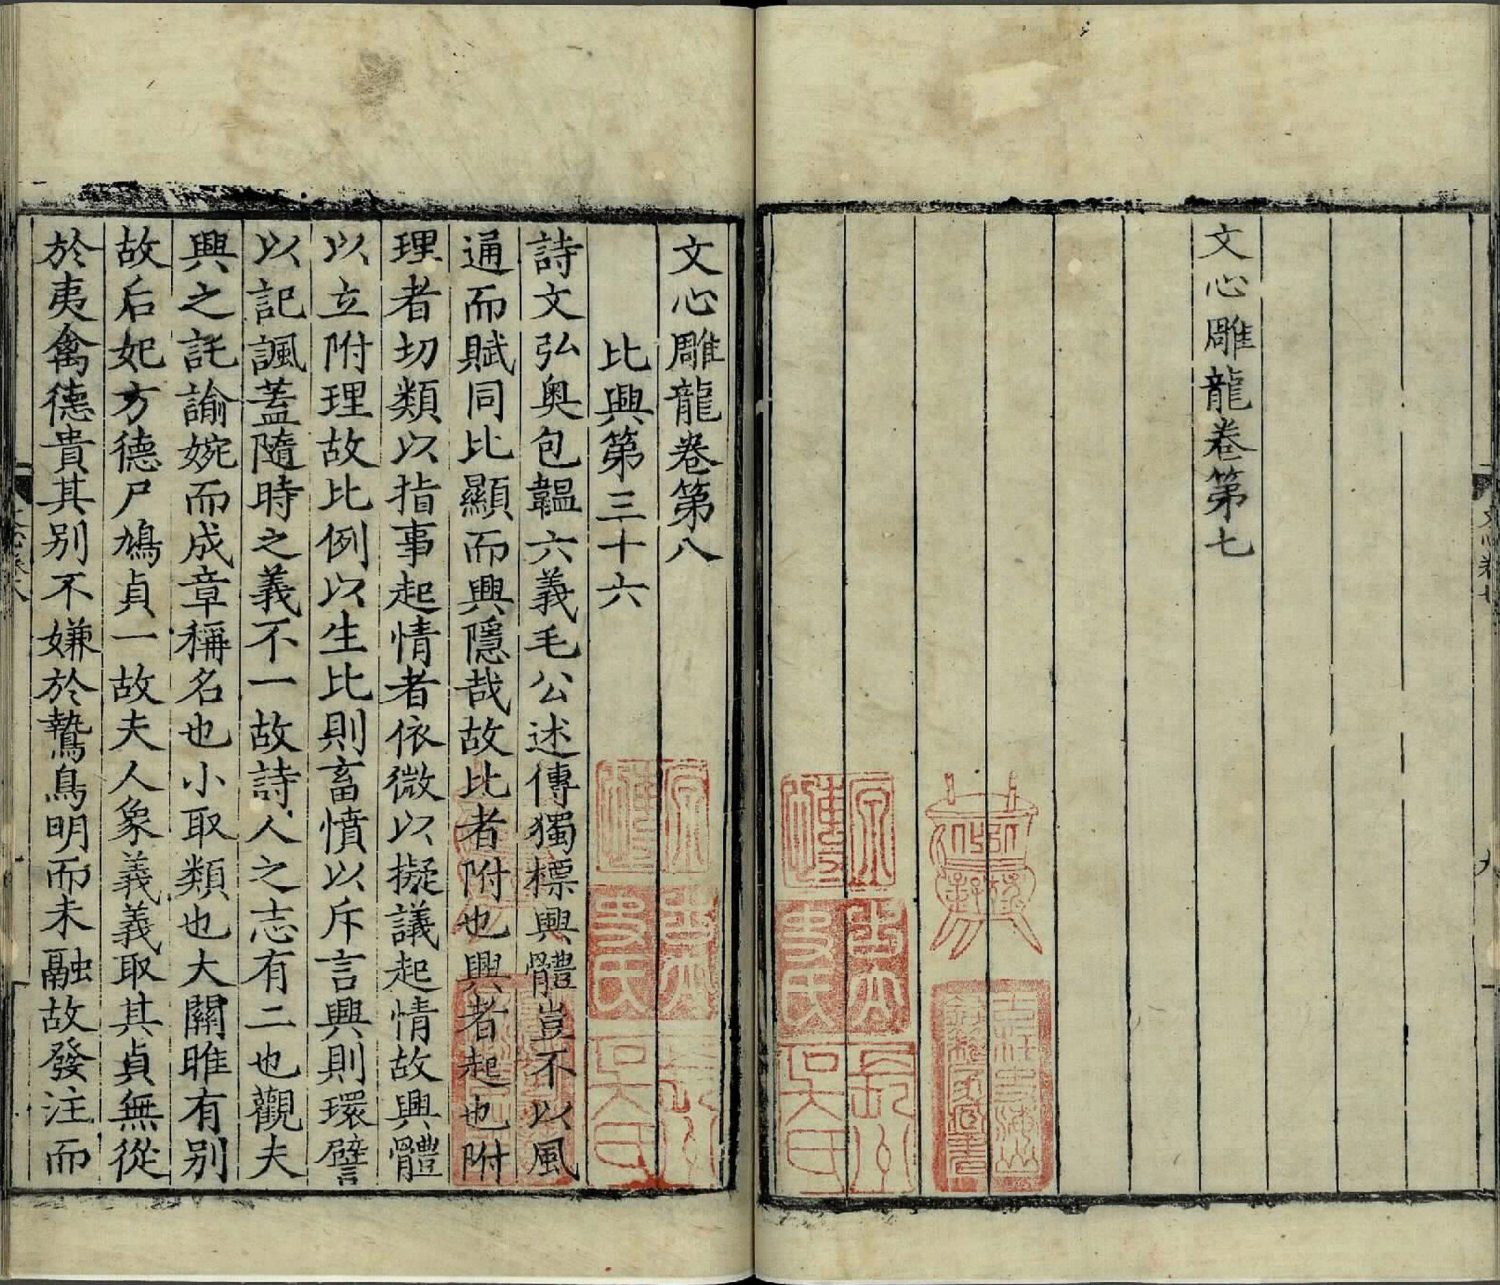 文心雕龍卷第七
文心雕龍卷第八
比興第三十六
詩文弘奧包韞六義毛公述傳獨標興體豈不以風
通而賦同比顯而興隱哉故比者附也興者起也附
理者切類以指事起情者依微以擬議起情故興體
以立附理故比例以生比則畜憤以斥言興則環譬
以記諷蓋隨時之義不一故詩人之志有二也觀夫
興之託諭婉而成章稱名也小取類也大關雎有別
故后妃方德尸鳩貞一故夫人象義義取其貞無從
於夷禽德貴其別不嫌於鷙鳥明而未融故發注而